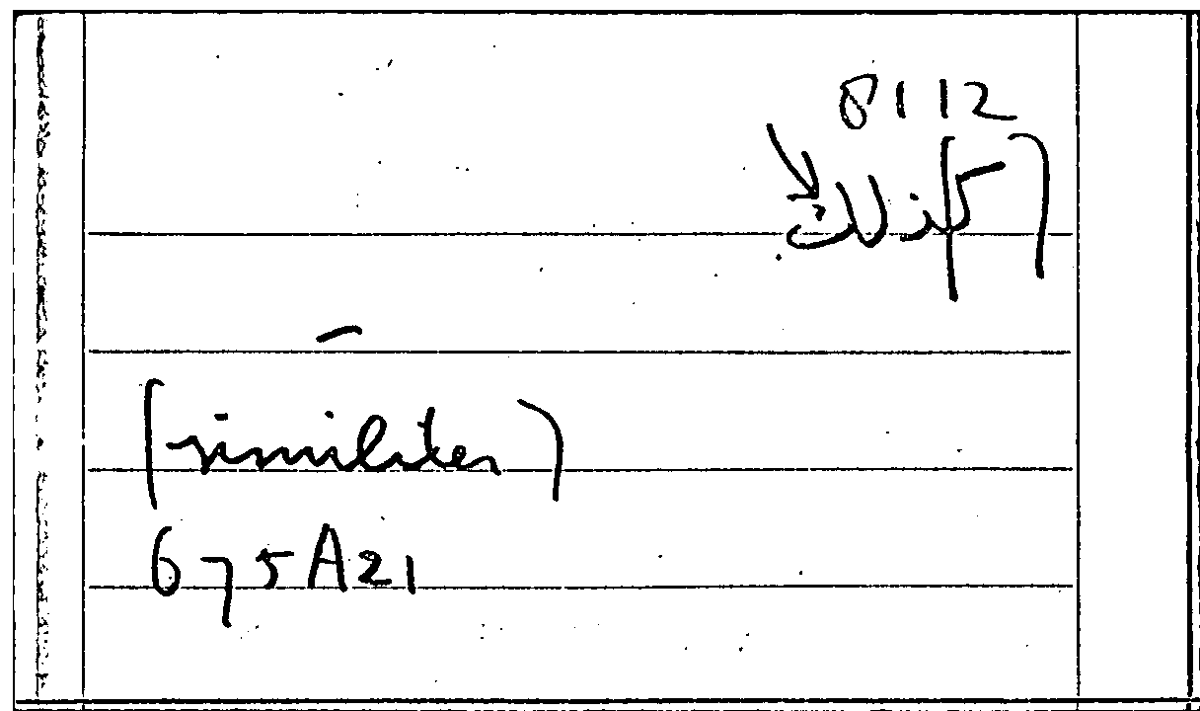 8112
(كذلك)
(similiter)
675A21